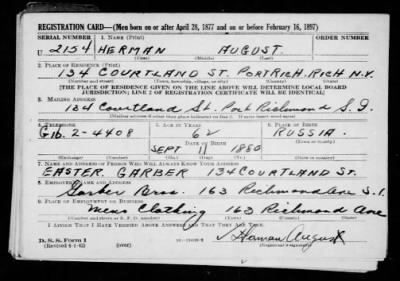 REGISTRATION CARD—(Men born on or after April 28, 1877 and on or before February 16, 1897)
SERIAL NUMBER 1. NAME (Print) ORDER NUMBER
U 2154 HERMAN AUGUST
(First) (Middle) (Last)
2. PLACE OF RESIDENCE (Print)
134 COURTLAND ST. PORT RICH. RICH N.Y.
(Number and street) (Town, township, village, or city) (County) (State)
[THE PLACE OF RESIDENCE GIVEN ON THE LINE ABOVE WILL DETERMINE LOCAL BOARD
JURISDICTION; LINE 2 OF REGISTRATION CERTIFICATE WILL BE IDENTICAL]
3. MAILING ADDRESS
134 Courtland St. Port Richmond S.I.
[Mailing address if other than place indicated on line 2. If same insert word same]
4. TELEPHONE 5. AGE IN YEARS 6. PLACE OF BIRTH
Gib. 2-4408 62 RUSSIA.
DATE OF BIRTH
SEPT 11 1880
(Exchange) (Number) (Mo.) (Day) (Yr.) (State or country)
7. NAME AND ADDRESS OF PERSON WHO WILL ALWAYS KNOW YOUR ADDRESS
EASTER. GARBER 134 COURTLAND ST.
8. EMPLOYER'S NAME AND ADDRESS
Garber Bros. 163 Richmond Ave S.I.
9. PLACE OF EMPLOYMENT OR BUSINESS
Mens Clothing 163 Richmond Ave
(Number and street or R. F. D. number) (Town) (County) (State)
I AFFIRM THAT I HAVE VERIFIED ABOVE ANSWERS AND THAT THEY ARE TRUE.
D. S. S. Form 1
(Revised 4-1-42) (over)
Herman August
(Registrant's signature)